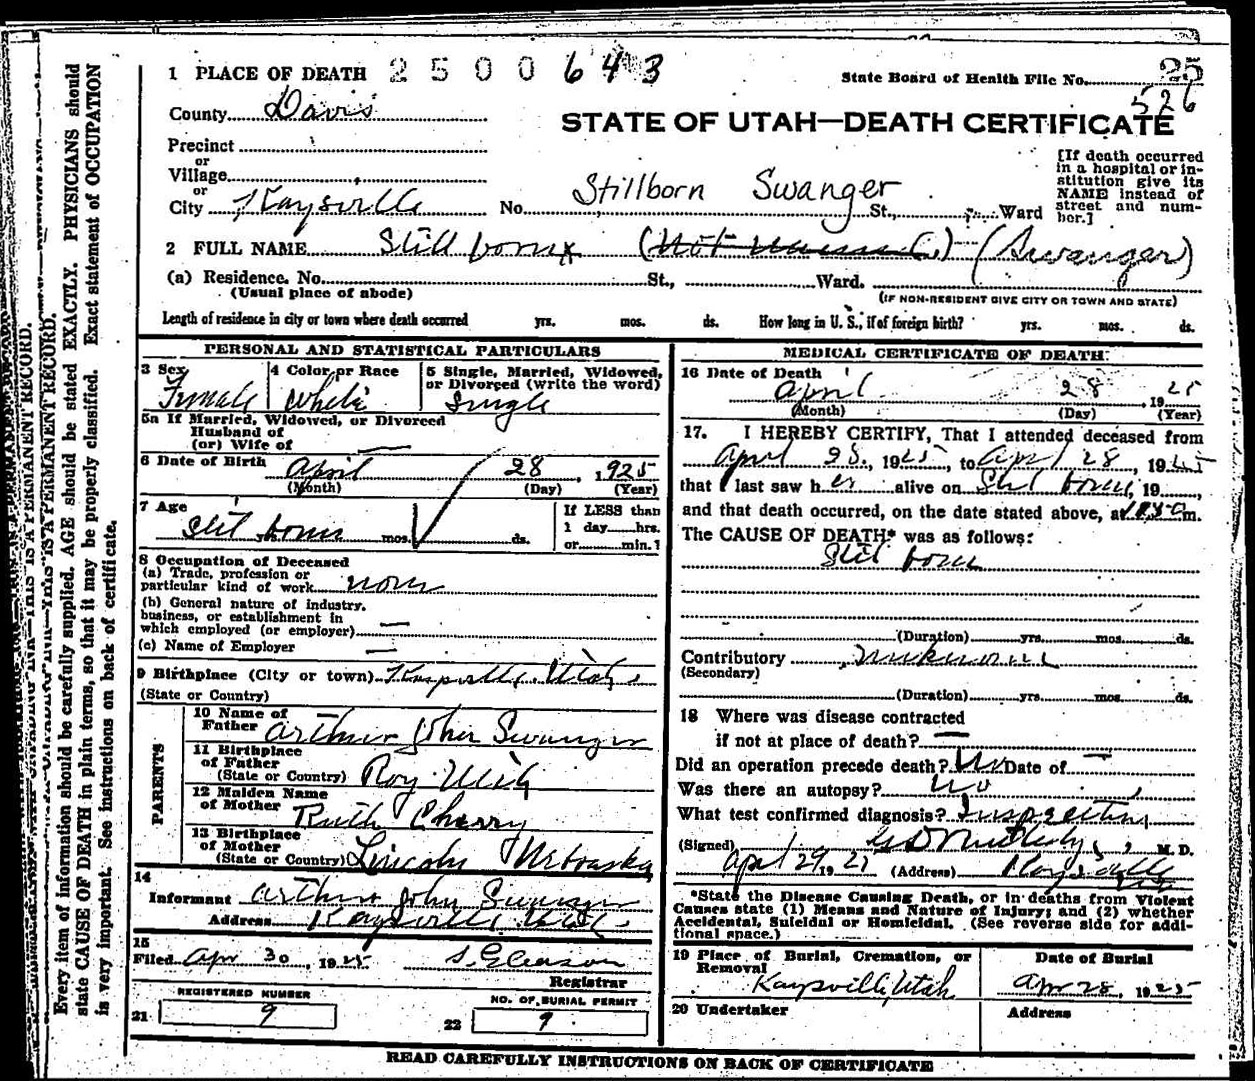 1 PLACE OF DEATH 2500643
State Board of Health File No. 25
526
County Davis
STATE OF UTAH—DEATH CERTIFICATE
Precinct
or
Village
or
City Kaysville No. Stillborn Swanger St., Ward
[If death occurred
in a hospital or in-
stitution give its
NAME instead of
street and num-
ber.]
2 FULL NAME Still born (Not named) (Swanger)
(a) Residence. No. St., Ward.
(Usual place of abode) (IF NON-RESIDENT GIVE CITY OR TOWN AND STATE)
Length of residence in city or town where death occurred yrs. mos. ds. How long in U. S., if of foreign birth? yrs. mos. ds.
PERSONAL AND STATISTICAL PARTICULARS
3 Sex 4 Color or Race 5 Single, Married, Widowed,
or Divorced (write the word)
Female White Single
5a If Married, Widowed, or Divorced
Husband of
(or) Wife of —
6 Date of Birth April 28, 1925
(Month) (Day) (Year)
7 Age If LESS than
Still born mos. ds. 1 day hrs.
or min.?
8 Occupation of Deceased
(a) Trade, profession or
particular kind of work none
(b) General nature of industry,
business, or establishment in
which employed (or employer) —
(c) Name of Employer —
9 Birthplace (City or town) Kaysville, Utah
(State or Country)
PARENTS
10 Name of
Father Arthur John Swanger
11 Birthplace
of Father
(State or Country) Roy Utah
12 Maiden Name
of Mother Ruth Cherry
13 Birthplace
of Mother
(State or Country) Lincoln Nebraska
14
Informant Arthur John Swanger
Address Kaysville Utah
15
Filed Apr 30, 1925 S. Gleason
Registrar
REGISTERED NUMBER NO. OF BURIAL PERMIT
21 9 22 9
MEDICAL CERTIFICATE OF DEATH
16 Date of Death
April 28, 1925
(Month) (Day) (Year)
17. I HEREBY CERTIFY, That I attended deceased from
April 28, 1925, to April 28, 1925
that I last saw her alive on Still born, 19
and that death occurred, on the date stated above, at m.
The CAUSE OF DEATH* was as follows:
Still born
(Duration) yrs. mos. ds.
Contributory unknown
(Secondary)
(Duration) yrs. mos. ds.
18 Where was disease contracted
if not at place of death? —
Did an operation precede death? No Date of —
Was there an autopsy? No
What test confirmed diagnosis? Inspection
(Signed) M. D.
Apr 29, 1925 (Address) Kaysville
*State the Disease Causing Death, or in deaths from Violent
Causes state (1) Means and Nature of Injury; and (2) whether
Accidental, Suicidal or Homicidal. (See reverse side for addi-
tional space.)
19 Place of Burial, Cremation, or
Removal Date of Burial
Kaysville, Utah Apr 28, 1925
20 Undertaker Address
READ CAREFULLY INSTRUCTIONS ON BACK OF CERTIFICATE
THIS IS A PERMANENT RECORD.
Every item of information should be carefully supplied. AGE should be stated EXACTLY. PHYSICIANS should
state CAUSE OF DEATH in plain terms, so that it may be properly classified. Exact statement of OCCUPATION
is very important. See instructions on back of certificate.